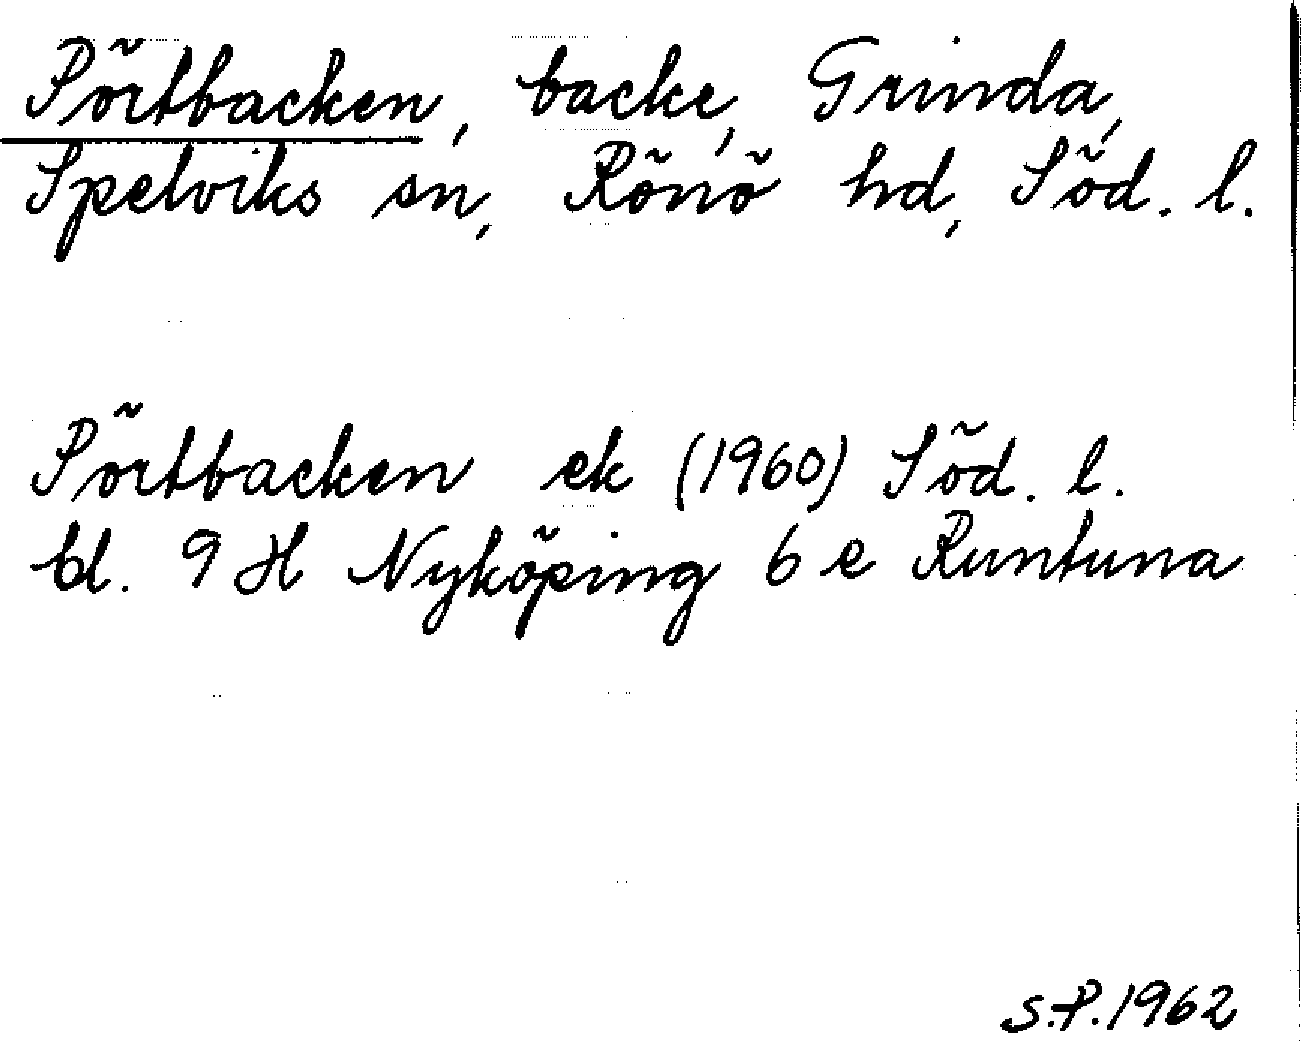 Pörtbacken, backe, Grinda,
Spelviks sn, Rönö hd, Söd. l.
Pörtbacken ek (1960) Söd. l.
bl. 9 H Nyköping 6 e Runtuna
S.P. 1962